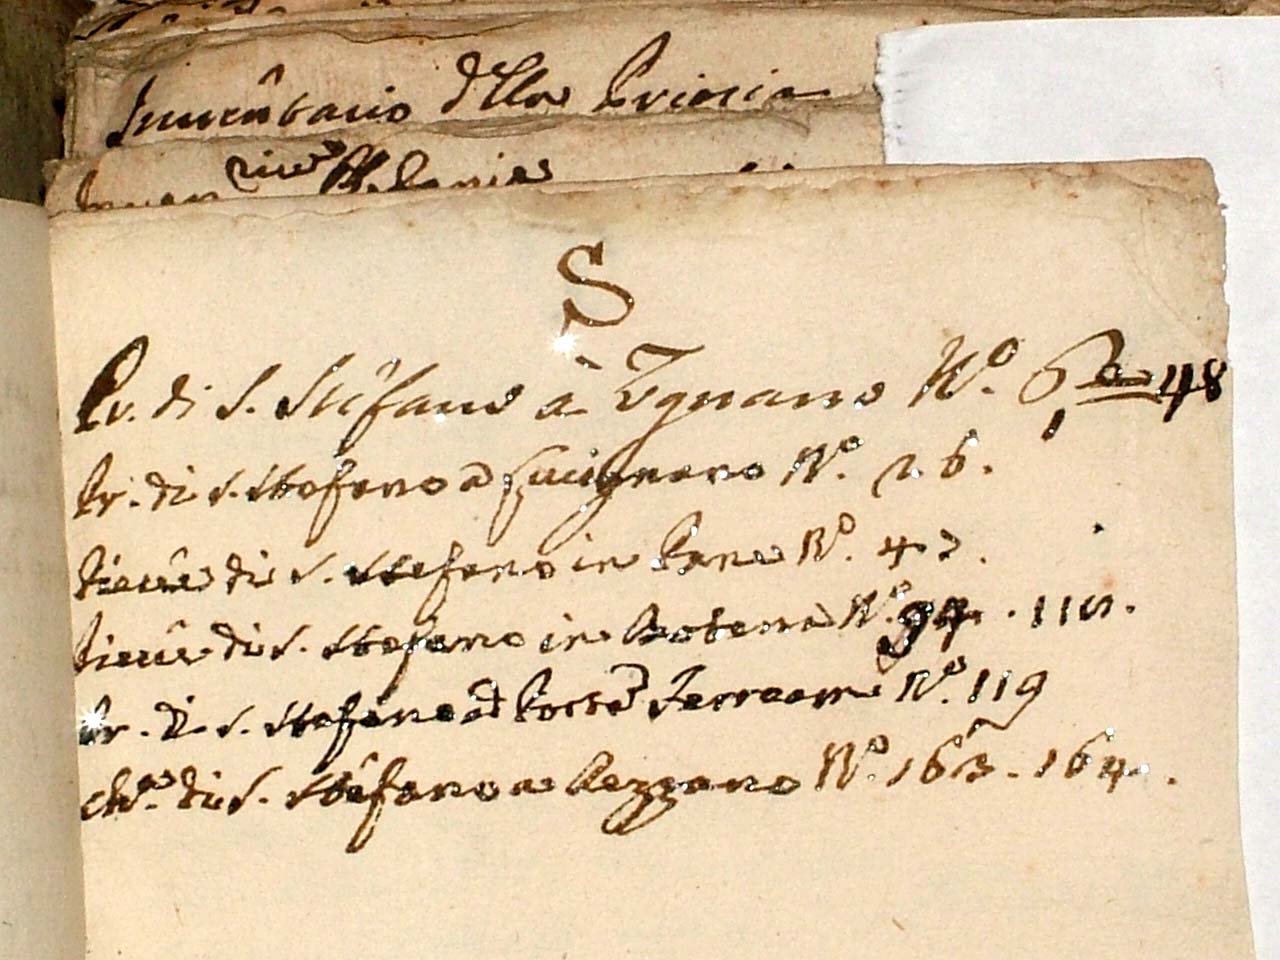 Inventario della Prioria
S
Pr. di S. Stefano à Ugnano N.º 48
Pr. di S. Stefano a Lucignano N.º 26.
Pieve di S. Stefano in Pane N.º 43.
Pieve di S. Stefano in Botena N.º 94. 115.
Pr. di S. Stefano a N.º 119
Ch.ª di S. Stefano a Rezzano N.º 163. 164.